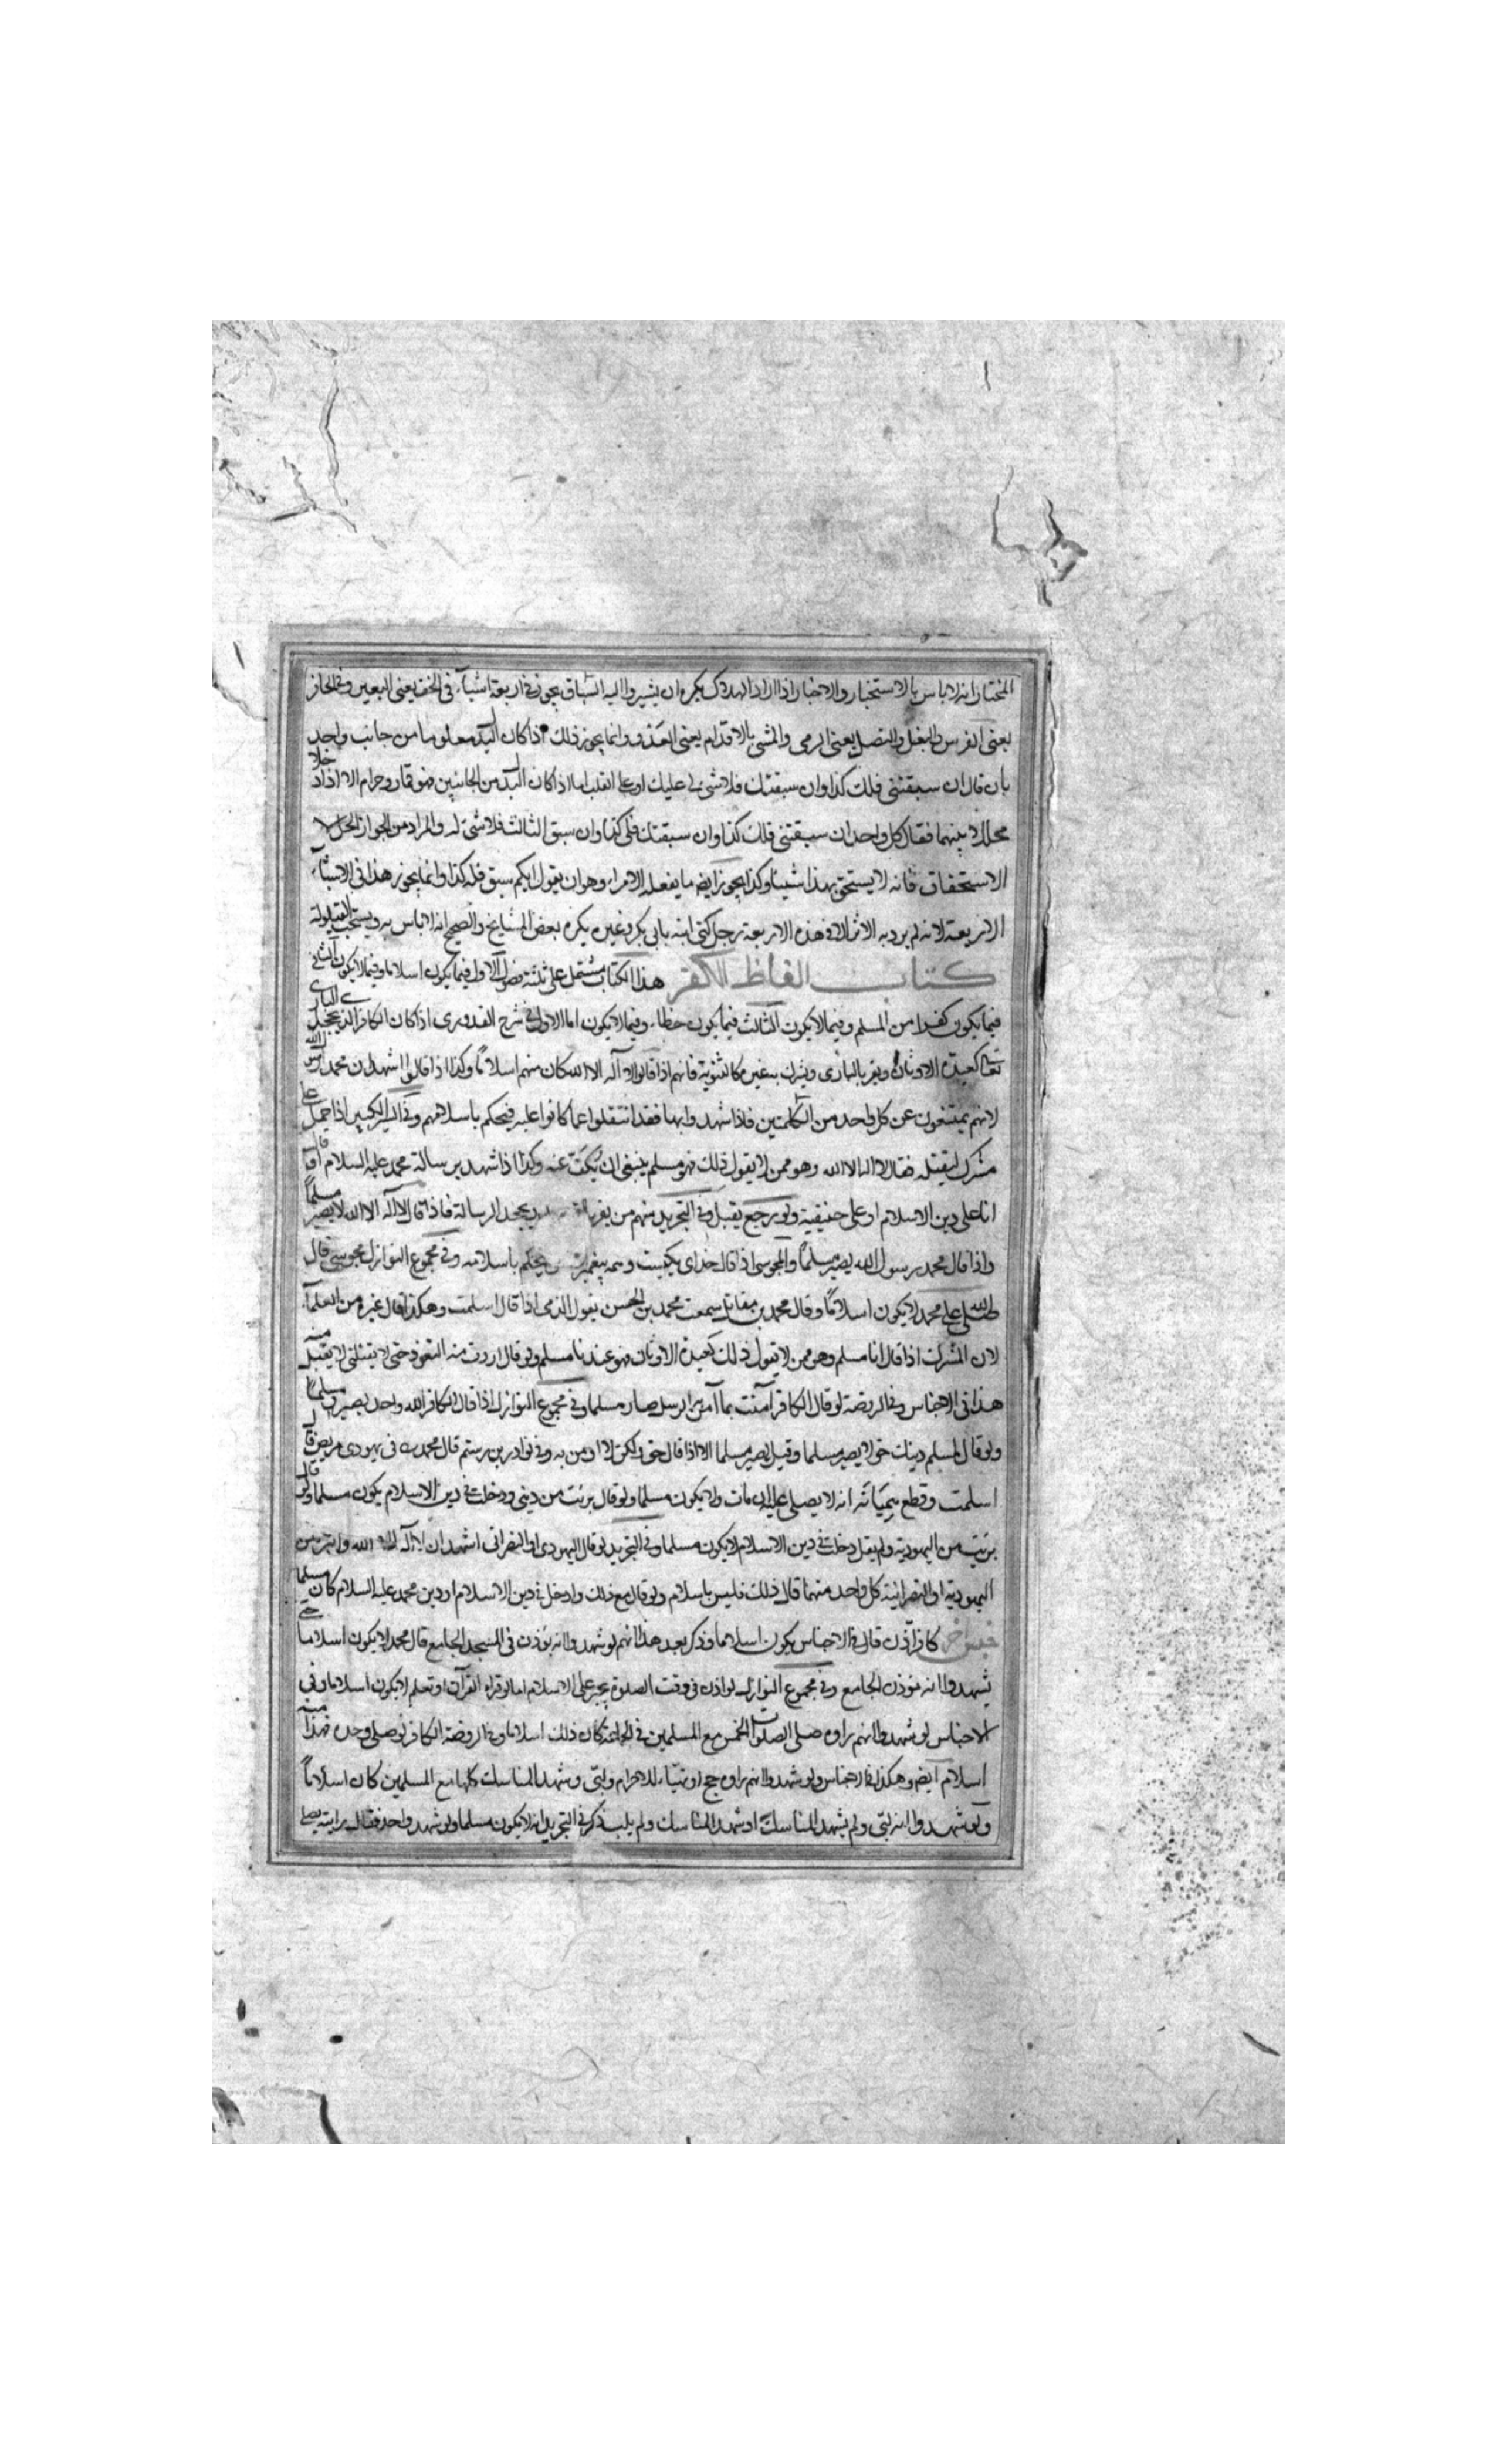 المختار انه لا باس بالاستخبار والاخبار اذا اراد الهدوك يكره ان يشيروا اليه السباق يجوز في اربعة اشياء في الخف يعني البعير وفي الحافر
يعني الفرس والبغل والنصل يعني الرمي والمشي بالاقدام يعني العدو وانما يجوز ذلك اذا كان البدل معلوما من جانب واحد
بان قال ان سبقتني فلك كذا وان سبقتك فلا شئ لي عليك او على القلب اما اذا كان البدل من الجانبين فهو قمار وحرام الا اذا ادخلا
محللا بينهما فقال كل واحد ان سبقتني فلك كذا وان سبقتك فلي كذا وان سبق الثالث فلا شئ له والمراد من الجواز الحل لا
الاستحقاق فانه لا يستحق بهذا شيئا وكذا يجوز ايضا ما يفعله الامراء وهو ان يقول ايكم سبق فله كذا وانما يجوز هذا في الاشياء
الاربعة لانه لم يرد به الاثر الا في هذه الاربعة رجل كنى ابنه بابي بكر وغيره يكره بعض المشايخ والصحيح انه لا باس به ويستحب القيلولة
كتاب الفاظ الكفر هذا الكتاب مشتمل على ثلثة فصول الاول فيما يكون اسلاما وفيما لا يكون الثاني
فيما يكون كفرا من المسلم وفيما لا يكون الثالث فيما يكون خطاء وفيما لا يكون اما الاول في شرح القدوري اذا كان الكافر الذي يجحد الباري
تعالى كعبدة الاوثان او يقر بالباري ويشرك بغيره كالثنوية فانهم اذا قالوا لا اله الا الله كان منهم اسلاما وكذا اذا قالوا اشهد ان محمدا رسول الله
لانهم يمتنعون عن كل واحد من الكلمتين فاذا شهدوا بها فقد انتقلوا عما كانوا عليه فيحكم باسلامهم وفي السير الكبير اذا حمل على
مشرك ليقتله فقال لا اله الا الله وهو ممن لا يقول ذلك فهو مسلم ينبغي ان يكف عنه وكذا اذا شهد برسالة محمد عليه السلام او قال
انا على دين الاسلام او على حنيفية ولو رجع يقبل وفي التجريد منهم من يقر يجحد الرسالة فاذا قال لا اله الا الله لا يصير مسلما
واذا قال محمد رسول الله يصير مسلما والمجوسي اذا قال خداى يكيست وهمه پيغمبران يحكم باسلامه وفي مجموع النوازل مجوسي قال
صلى الله على محمد لا يكون اسلاما وقال محمد بن مقاتل سمعت محمد بن الحسن يقول الذمي اذا قال اسلمت وهكذا قال غيره من العلماء
لان المشرك اذا قال انا مسلم وهو ممن لا يقول ذلك كعبدة الاوثان فهو عندنا مسلم ولو قال اردت منه التعوذ حتى لا يقتلني لا يقبل منه
هذا في الاجناس وفي الروضة لو قال الكافر آمنت بما آمن به الرسل صار مسلما وفي مجموع النوازل اذا قال الكافر الله واحد يصير به مسلما
ولو قال لمسلم دينك حق لا يصير مسلما وقيل يصير مسلما الا اذا قال حق ولكن لا اومن به وفي نوادر بن رستم قال محمد في يهودي مريض قال
اسلمت وقطع انه لا يصلى عليه ان مات ولا يكون مسلما ولو قال برئت من ديني ودخلت في دين الاسلام يكون مسلما ولو قال
برئت من اليهودية ولم يقل دخلت في دين الاسلام لا يكون مسلما وفي التجريد لو قال اليهودي او النصراني اشهد ان لا اله الا الله واتبرء من
اليهودية او النصرانية كل واحد منهما قال ذلك فليس باسلام ولو قال مع ذلك وادخل في دين الاسلام او دين محمد عليه السلام كان مسلما
كافر اذن قال في الاجناس يكون اسلاما وذكر بعد هذا انهم لو شهدوا انه يؤذن في المسجد الجامع قال محمد لا يكون اسلاما حتى
يشهدوا انه مؤذن الجامع وفي مجموع النوازل لو اذن في وقت الصلوة يجبر على الاسلام اما لو قراء القرآن او تعلم لا يكون اسلاما وفي
الاجناس لو شهدوا انهم راوه صلى الصلوات الخمس مع المسلمين في الجماعة كان ذلك اسلاما وفي الروضة الكافر لو صلى وحده فهذا منه
اسلام ايضا وهكذا في الاجناس ولو شهدوا انهم راوه حج او تهياء للاحرام ولبى وشهد المناسك كلها مع المسلمين كان اسلاما
ولو شهدوا انه لبى ولم يشهد المناسك او شهد المناسك ولم يلب ذكر في التجريد انه لا يكون مسلما ولو شهد واحد فقال رايته يصلي